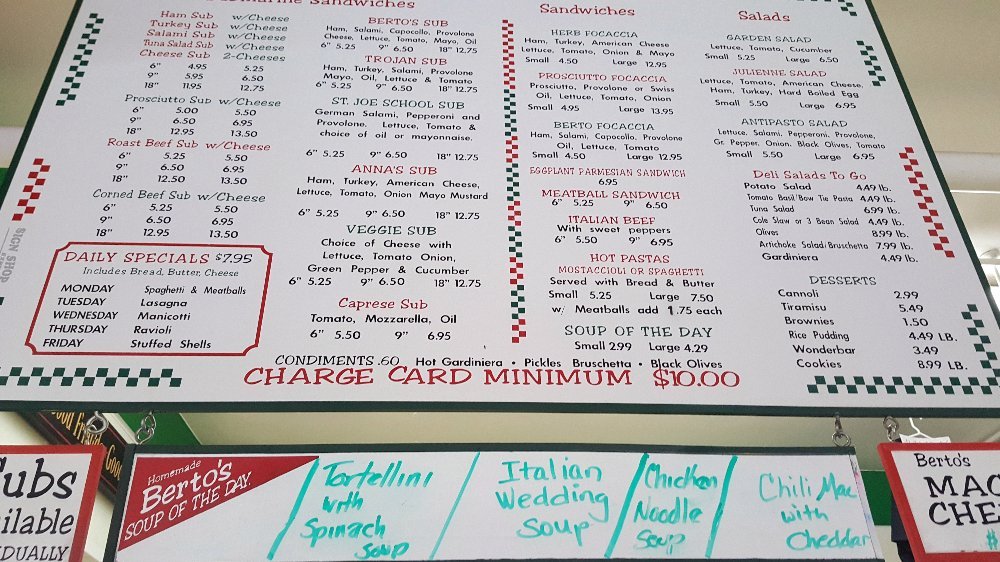 Sandwiches
Ham Sub w/Cheese
Turkey Sub w/Cheese
Salami Sub w/Cheese
Tuna Salad Sub w/Cheese
Cheese Sub 2-Cheeses
6" 4.95 5.25
9" 5.95 6.50
18" 11.95 12.75
Prosciutto Sub w/Cheese
6" 5.00 5.50
9" 6.50 6.95
18" 12.95 13.50
Roast Beef Sub w/Cheese
6" 5.25 5.50
9" 6.50 6.95
18" 12.50 13.50
Corned Beef Sub w/Cheese
6" 5.25 5.50
9" 6.50 6.95
18" 12.95 13.50
DAILY SPECIALS $7.95
Includes Bread, Butter, Cheese
MONDAY Spaghetti & Meatballs
TUESDAY Lasagna
WEDNESDAY Manicotti
THURSDAY Ravioli
FRIDAY Stuffed Shells
SIGN SHOP
BERTO'S SUB
Ham, Salami, Capocollo, Provolone
Cheese, Lettuce, Tomato, Mayo, Oil
6" 5.25 9" 6.50 18" 12.75
TROJAN SUB
Ham, Turkey, Salami, Provolone
Mayo, Oil, Lettuce & Tomato
6" 5.25 9" 6.50 18" 12.75
ST. JOE SCHOOL SUB
German Salami, Pepperoni and
Provolone. Lettuce, Tomato &
choice of oil or mayonnaise.
6" 5.25 9" 6.50 18" 12.75
ANNA'S SUB
Ham, Turkey, American Cheese,
Lettuce, Tomato, Onion Mayo Mustard
6" 5.25 9" 6.50 18" 12.75
VEGGIE SUB
Choice of Cheese with
Lettuce, Tomato Onion,
Green Pepper & Cucumber
6" 5.25 9" 6.50 18" 12.75
Caprese Sub
Tomato, Mozzarella, Oil
6" 5.50 9" 6.95
Sandwiches
HERB FOCACCIA
Ham, Turkey, American Cheese
Lettuce, Tomato, Onion & Mayo
Small 4.50 Large 12.95
PROSCIUTTO FOCACCIA
Prosciutto, Provolone or Swiss
Oil, Lettuce, Tomato, Onion
Small 4.95 Large 13.95
BERTO FOCACCIA
Ham, Salami, Capocollo, Provolone
Oil, Lettuce, Tomato
Small 4.50 Large 12.95
EGGPLANT PARMESIAN SANDWICH
6.95
MEATBALL SANDWICH
6" 5.25 9" 6.50
ITALIAN BEEF
With sweet peppers
6" 5.50 9" 6.95
HOT PASTAS
MOSTACCIOLI OR SPAGHETTI
Served with Bread & Butter
Small 5.25 Large 7.50
w/ Meatballs add 1.75 each
SOUP OF THE DAY
Small 2.99 Large 4.29
Salads
GARDEN SALAD
Lettuce, Tomato, Cucumber
Small 5.25 Large 6.50
JULIENNE SALAD
Lettuce, Tomato, American Cheese,
Ham, Turkey, Hard Boiled Egg
Small 5.50 Large 6.95
ANTIPASTO SALAD
Lettuce, Salami, Pepperoni, Provolone,
Gr. Pepper, Onion, Black Olives, Tomato
Small 5.50 Large 6.95
Deli Salads To Go
Potato Salad 4.49 lb.
Tomato Basil Bow Tie Pasta 4.49 lb.
Tuna Salad 6.99 lb.
Cole Slaw or 3 Bean Salad 4.49 lb.
Olives 8.99 lb.
Artichoke Salad/Bruschetta 7.99 lb.
Gardiniera 4.49 lb.
DESSERTS
Cannoli 2.99
Tiramisu 5.49
Brownies 1.50
Rice Pudding 4.49 LB.
Wonderbar 3.49
Cookies 8.99 LB.
CONDIMENTS .60 Hot Gardiniera • Pickles Bruschetta • Black Olives
CHARGE CARD MINIMUM $10.00
Homemade
Berto's
SOUP OF THE DAY
Tortellini
with
Spinach
Soup
Italian
Wedding
Soup
Chicken
Noodle
Soup
Chili Mac
with
Cheddar
Berto's